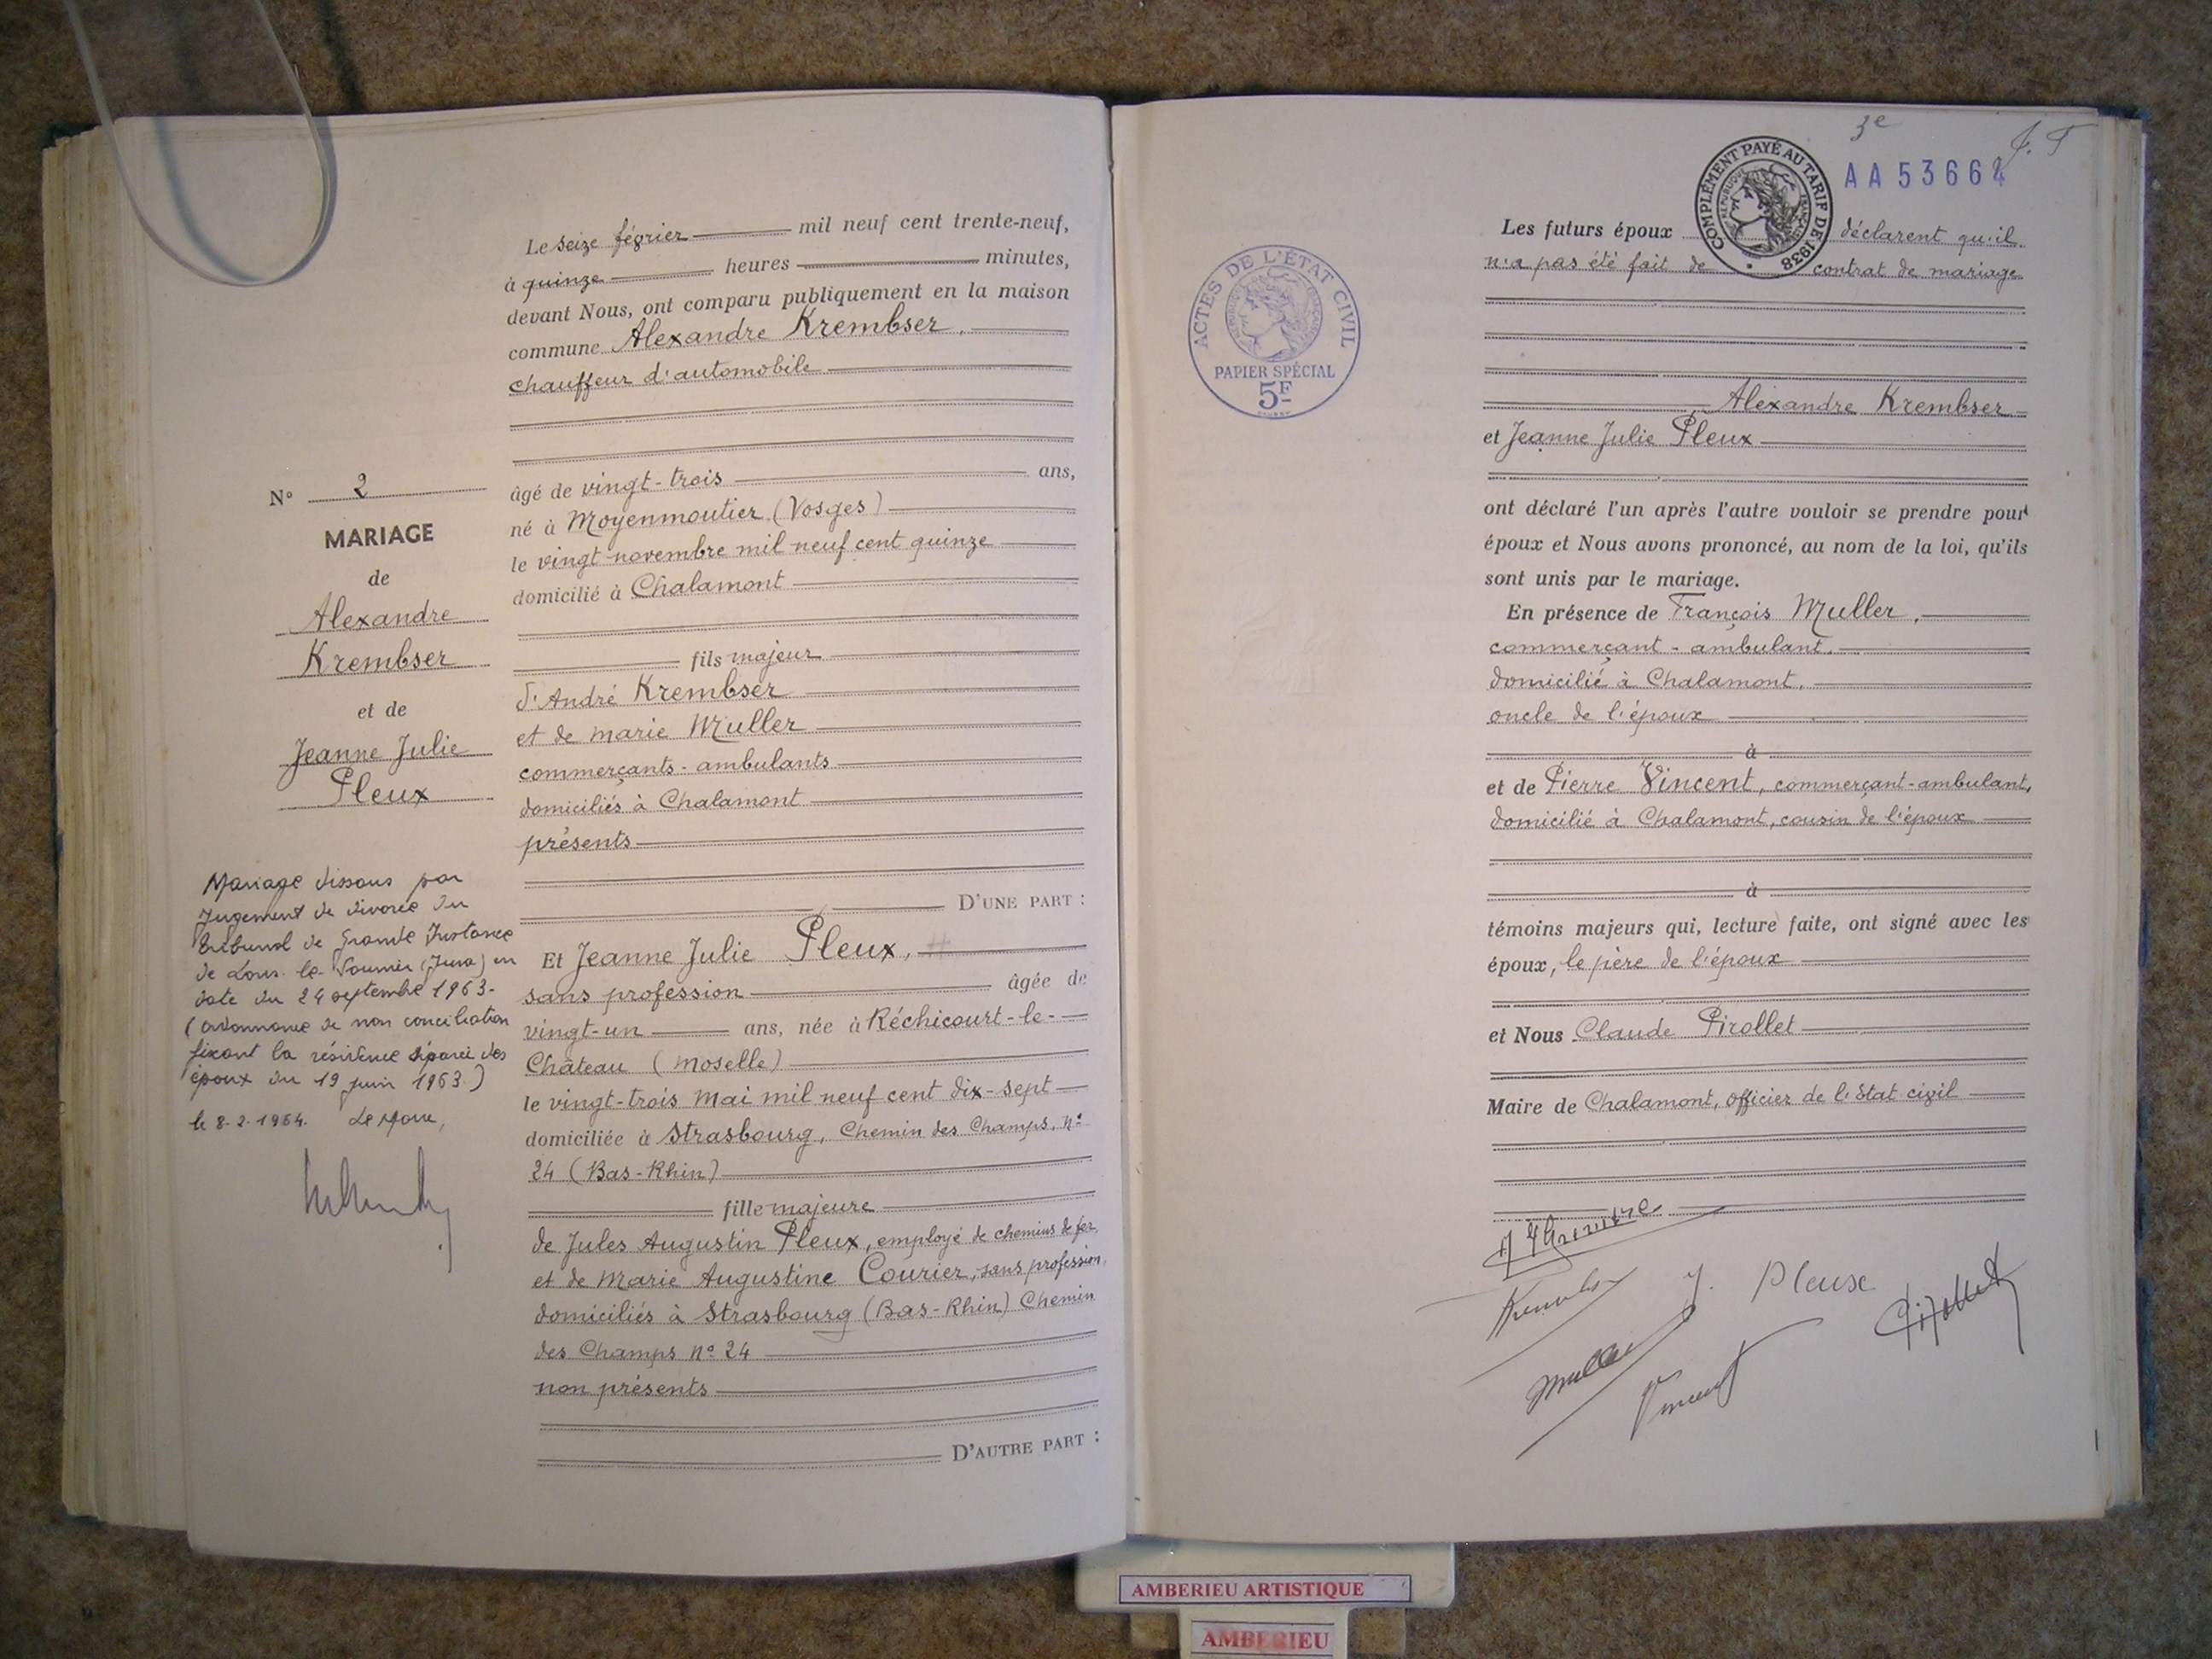 Le seize février mil neuf cent trente-neuf,
à quinze heures minutes,
devant Nous, ont comparu publiquement en la maison
commune Alexandre Krembser,
chauffeur d'automobile
N° 2
MARIAGE
de
Alexandre
Krembser
et de
Jeanne Julie
Pleux
âgé de vingt-trois ans,
né à Moyenmoutier (Vosges)
le vingt novembre mil neuf cent quinze
domicilié à Chalamont
fils majeur
d'André Krembser
et de marie Muller
commerçants-ambulants
domiciliés à Chalamont
présents
D'UNE PART :
Mariage dissous par
Jugement de divorce du
tribunal de Grande Instance
de Lons-le-Saunier (Jura) en
date du 24 septembre 1963-
(ordonnance de non conciliation
fixant la résidence séparée des
époux du 19 juin 1963)
le 8-2-1964. Le Maire,
Et Jeanne Julie Pleux,
sans profession âgée de
vingt-un ans, née à Réchicourt-le-
Château (Moselle)
le vingt-trois Mai mil neuf cent dix-sept
domiciliée à Strasbourg, Chemin des Champs, n°
24 (Bas-Rhin)
fille majeure
de Jules Augustin Pleux, employé de chemins de fer
et de Marie Augustine Courier, sans profession,
domiciliés à Strasbourg (Bas-Rhin) Chemin
des Champs n° 24
non présents
D'AUTRE PART :
3e
J. T
AA 53664
COMPLÉMENT PAYÉ AU TARIF DE 1938
RÉPUBLIQUE FRANÇAISE
ACTES DE L'ÉTAT CIVIL
RÉPUBLIQUE FRANÇAISE
PAPIER SPÉCIAL
5F
Les futurs époux déclarent qu'il
n'a pas été fait de contrat de mariage
Alexandre Krembser
et Jeanne Julie Pleux
ont déclaré l'un après l'autre vouloir se prendre pour
époux et Nous avons prononcé, au nom de la loi, qu'ils
sont unis par le mariage.
En présence de François Muller,
commerçant-ambulant,
domicilié à Chalamont,
oncle de l'époux
à
et de Pierre Vincent, commerçant-ambulant,
domicilié à Chalamont, cousin de l'époux
à
témoins majeurs qui, lecture faite, ont signé avec les
époux, le père de l'époux
et Nous Claude Pirollet
Maire de Chalamont, officier de l'État-civil
J. Pleux
Pirollet
Muller
Vincent
AMBERIEU ARTISTIQUE
AMBERIEU